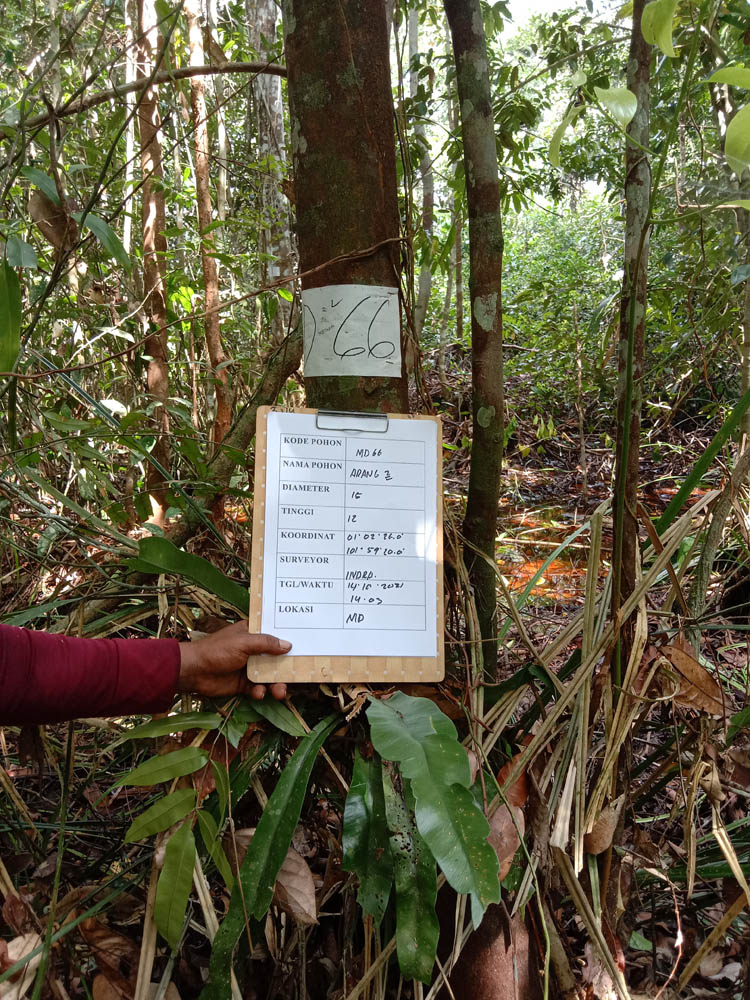 66
KODE POHON MD66
NAMA POHON ARANG 2
DIAMETER 15
TINGGI 12
KOORDINAT 01° 02' 26.0"
101° 59' 20.0"
SURVEYOR INDRA.
TGL/WAKTU 14.10.2021
14.03
LOKASI MD